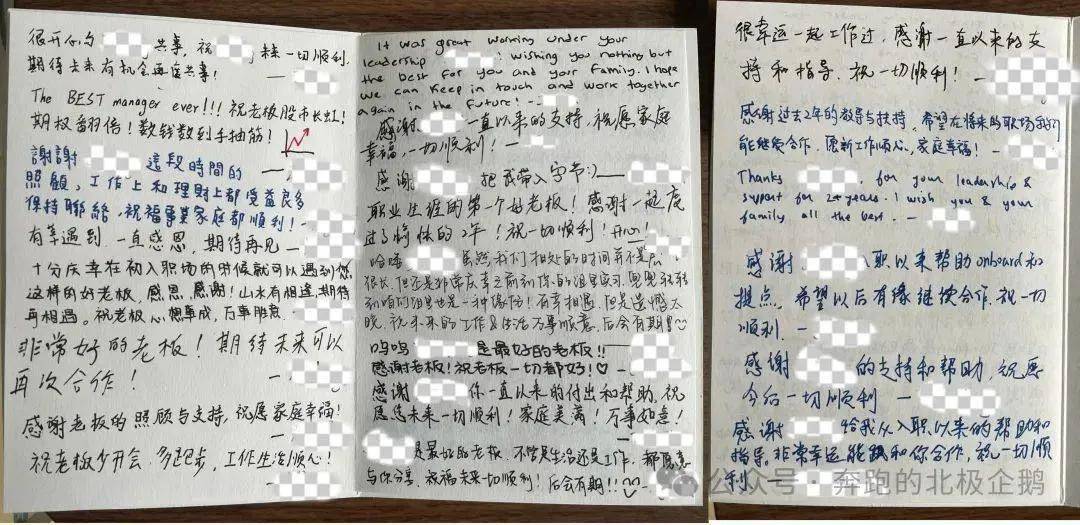 很开心与 共事，祝 未来一切顺利.
期待未来有机会再度共事！
The BEST manager ever!!! 祝老板股市长虹！
期权翻倍！数钱数到手抽筋！
謝謝 這段時間的
照顧，工作上和理財上都受益良多
保持聯絡，祝福事業家庭都順利！
有幸遇到 一直感恩，期待再见
十分庆幸在初入职场的时候就可以遇到您
这样的好老板，感恩，感谢！山水有相逢，期待
再相遇。祝老板心想事成，万事胜意
非常好的老板！期待未来可以
再次合作！
感谢老板的照顾与支持，祝愿家庭幸福！
祝老板少开会，多跑步，工作生活顺心！
It was great working under your
leadership wishing you nothing but
the best for you and your family. I hope
we can keep in touch and work together
again in the future!
感谢 一直以来的支持，祝愿家庭
幸福，一切顺利！
感谢 把我带入字节:)
职业生涯的第一个好老板！感谢一起度
过了愉快的2年！祝一切顺利！
哈喽 虽然我们相处的时间并不是
很长，但还是非常庆幸之前到你的组里实习.
到咱们组里也是一种缘份！有幸相遇，但是遗憾太
晚，祝未来的工作&生活万事顺意，后会有期！
呜呜 是最好的老板!!
感谢老板！祝老板一切都好！♡
感谢 你一直以来的付出和帮助，祝
愿您未来一切顺利！家庭美满！万事如意！
是最好的老板，不管是生活还是工作，都愿意
与你分享，祝福未来一切顺利！后会有期!!
很幸运一起工作过，感谢一直以来的支
持和指导，祝一切顺利！
感谢过去2年的教导与扶持，希望在将来的职场我们
能继续合作，愿新工作顺心，家庭幸福！
Thanks , for your leadership &
support for 2+ years. I wish you & your
family all the best.
感谢 入职以来帮助onboard和
提点，希望以后有缘继续合作，祝一切
顺利.
感谢 的支持和帮助，祝愿
今后一切顺利
感谢 给我从入职以来的帮助和
指导，非常幸运能和你合作，祝一切顺
利
公众号·奔跑的北极企鹅